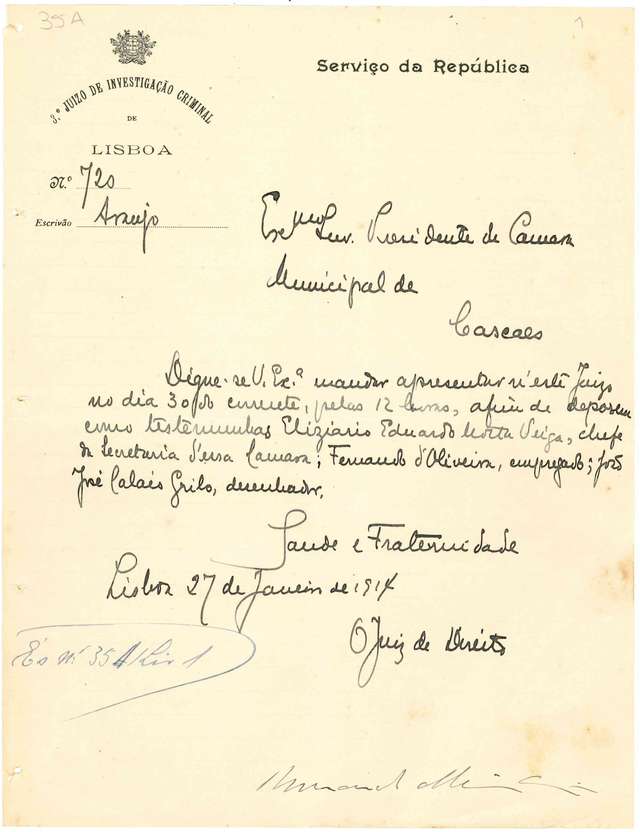 39A
1
3.º JUIZO DE INVESTIGAÇÃO CRIMINAL
DE
LISBOA
N.º 720
Escrivão Araujo
Serviço da República
Exᵐᵒ Snr. Presidente de Camara
Municipal de
Cascaes
Digne-se V. Ex.ª mandar apresentar n'este Juizo
no dia 30 do corrente, pelas 12 horas, afim de deporem
como testemunhas Eliziário Eduardo Motta Veiga, chefe
da Secretaria d'essa Camara; Fernando d'Oliveira, empregado; João
José Calais Grilo, desenhador.
Saude e Fraternidade
Lisboa 27 de Janeiro de 1914
O Juiz de Direito
nº 35A